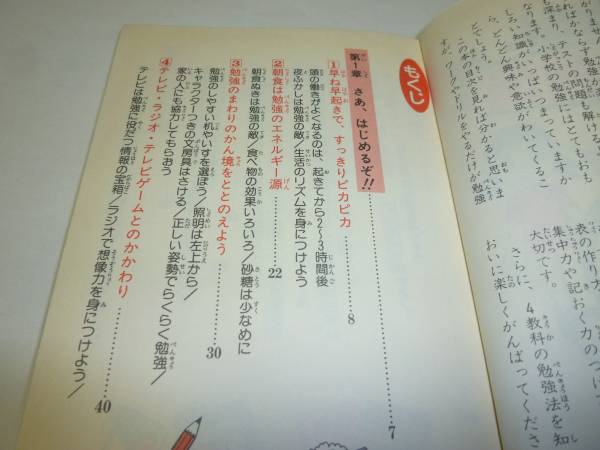 がりませ
ればかならず
ん。テストの問題も解ける。
す。小学校の勉強にはとてもおも
なります。
しろい知識がいっぱいつまっていますか
ら、どんどん興味や意欲がわいてくるこ
とでしょう。
この本の目次を見れば分かると思いま
すが、ワークやドリルをやるだけが勉強
表の作り方
集中力や記
おく力のつけ
大切です。
さらに、4教科の勉強法を知
おいに楽しくがんばってくださ
もくじ
第1章 さあ、はじめるぞ!!……7
1 早ね早起きで、すっきりピカピカ……8
頭の働きがよくなるのは、起きてから2〜3時間後
夜ふかしは勉強の敵/生活のリズムを身につけよう
2 朝食は勉強のエネルギー源……22
朝食ぬきは勉強の敵/食べ物の効果いろいろ/砂糖は少なめに
3 勉強のまわりのかん境をととのえよう……30
勉強のしやすい机やいすを選ぼう/照明は左上から/
キャラクターつきの文房具はさける/正しい姿勢でらくらく勉強/
家の人にも協力してもらおう
4 テレビ・ラジオ・テレビゲームとのかかわり……40
テレビは勉強に役だつ情報の宝箱/ラジオで想像力を身につけよう/